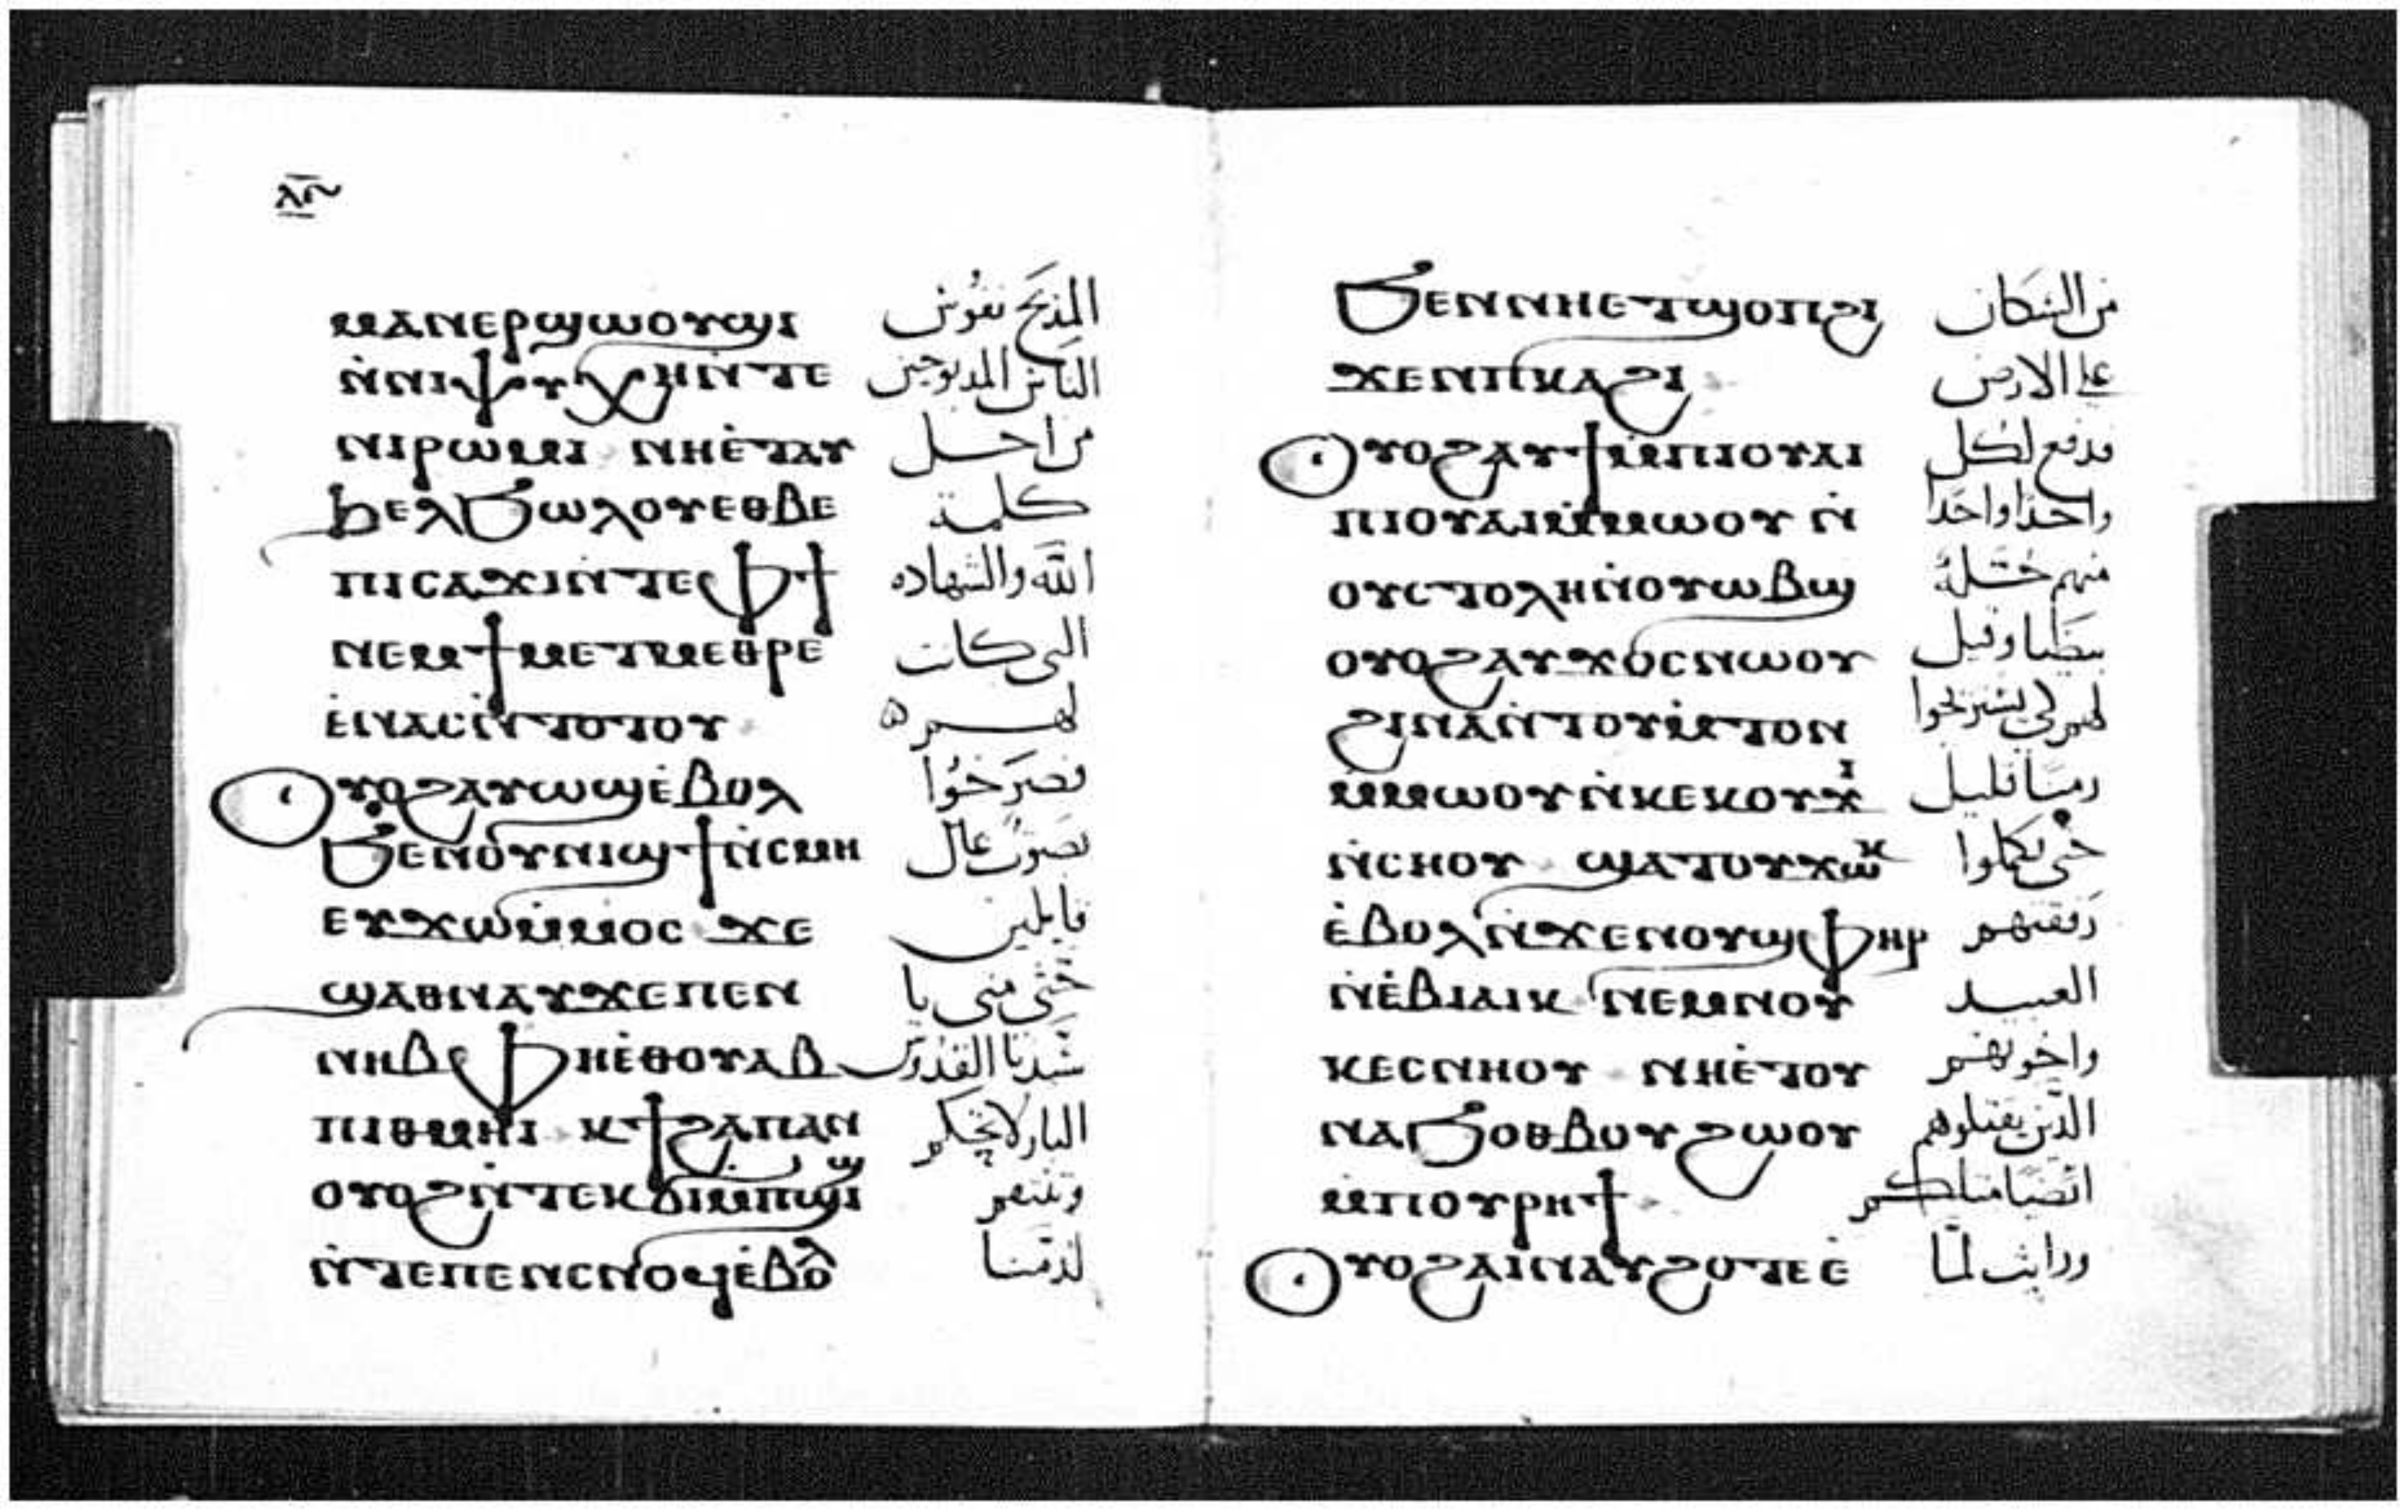 ⲙⲁⲛⲉⲣϣⲱⲟⲩϣⲓ المذبح نفوس
ⲛ̀ⲛⲓⲯⲩⲭⲏⲛ̀ⲧⲉ الناس المدبوحين
ⲛⲓⲣⲱⲙⲓ ⲛⲏⲉ̀ⲧⲁⲩ من اجل
ϧⲉⲗϧⲱⲗⲟⲩⲉⲑⲃⲉ كلمة
ⲡⲓⲥⲁϫⲓⲛ̀ⲧⲉⲫϯ الله والشهاده
ⲛⲉⲙϯⲙⲉⲧⲙⲉⲑⲣⲉ التى كانت
ⲉ̀ⲛⲁⲥⲛ̀ⲧⲟⲧⲟⲩ لهم
ⲟⲩⲟϩⲁⲩⲱϣⲉ̀ⲃⲟⲗ فصرخوا
ϧⲉⲛⲟⲩⲛⲓϣϯⲛ̀ⲥⲙⲏ بصوت عال
ⲉⲩϫⲱⲙ̀ⲙⲟⲥ ϫⲉ قايلين
ϣⲁⲑⲛⲁⲩϫⲉⲡⲉⲛ حتى متى يا
ⲛⲏⲃ ⲫⲏⲉ̀ⲑⲟⲩⲁⲃ سيدنا القدوس
ⲡⲓⲑⲙⲏⲓ ⲕϯϩⲁⲡⲁⲛ البار لا تحكم
ⲟⲩⲟϩⲛ̀ⲧⲉⲕϭⲓⲙ̀ⲡϣⲓϣ وتنتقم
ⲛ̀ⲧⲉⲡⲉⲛⲥⲛⲟϥⲉ̀ⲃⲟⲗ لدمنا
ϧⲉⲛⲛⲏⲉⲧϣⲟⲡϩⲓ من السكان
ϫⲉⲛⲡⲕⲁϩⲓ على الارض
ⲟⲩⲟϩⲁⲩϯⲙ̀ⲡⲓⲟⲩⲁⲓ فدفع لكل
ⲡⲓⲟⲩⲁⲓⲙ̀ⲙⲱⲟⲩ ⲛ̀ واحدا واحدا
ⲟⲩⲥⲧⲟⲗⲏⲛ̀ⲟⲩⲱⲃϣ منهم حلة
ⲟⲩⲟϩⲁⲩϫⲟⲥⲛⲱⲟⲩ بيضا وقيل
ϩⲓⲛⲁⲛ̀ⲧⲟⲩⲙ̀ⲧⲟⲛ لهم لكى يستريحوا
ⲙ̀ⲙⲱⲟⲩⲛ̀ⲕⲉⲕⲟⲩϫⲓ زمنا قليل
ⲛ̀ⲥⲏⲟⲩ ϣⲁⲧⲟⲩϫⲱⲕ حتى يكملوا
ⲉ̀ⲃⲟⲗⲛ̀ϫⲉⲛⲟⲩϣⲫⲏⲣ رفقتهم
ⲛ̀ⲉ̀ⲃⲓⲁⲓⲕ ⲛⲉⲙⲛⲟⲩ العبيد
ⲕⲉⲥⲛⲏⲟⲩ ⲛⲏⲉ̀ⲧⲟⲩ واخوتهم
ⲛⲁϧⲟⲑⲃⲟⲩϩⲱⲟⲩ الذين يقتلوهم
ⲙ̀ⲡⲟⲩⲣⲏϯ ايضا مثلهم
ⲟⲩⲟϩⲁⲓⲛⲁⲩϩⲟⲧⲉⲉ̀ ورايت لما